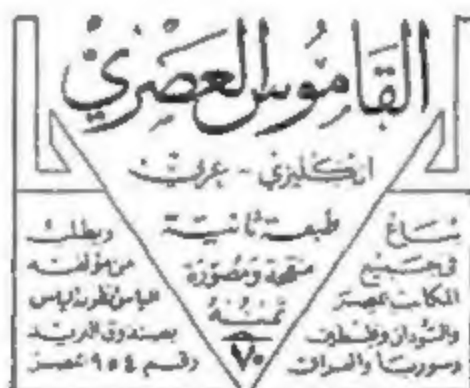 القاموس العصري
انكليزي - عربي
طبعة ثانية
منقحة ومصورة
ثمنه
٧٠
تباع
في جميع
المكاتب بمصر
والسودان وفلسطين
وسوريا والعراق
ويطلب
من مؤلفه
الياس انطون الياس
بصندوق البريد
رقم ٩٥٤ بمصر